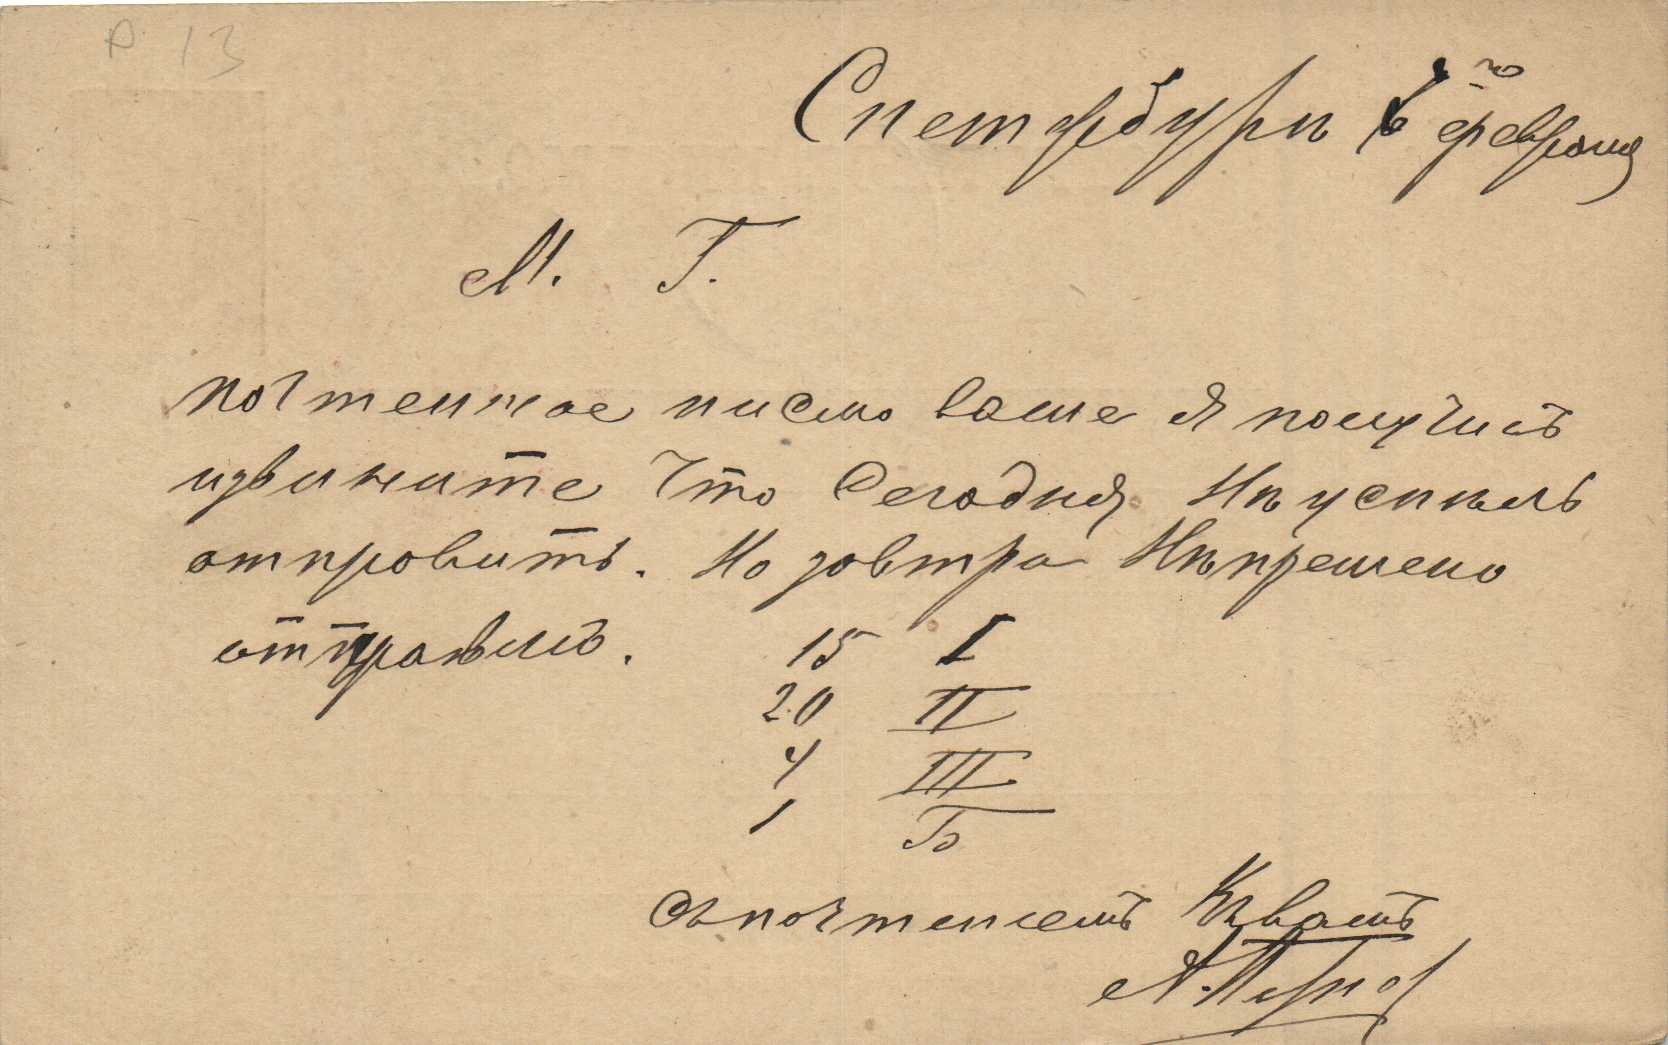 Р 13
Спетербургъ 6 го февраля
М. Г.
почтенное писмо ваше я получилъ
извините что Сегодня Нъ успѣлъ
отправить. Но завтра Нъпремено
отправлю.
15 I
20 II
4 III
1 Гб
съ почтениемъ Къ вамъ